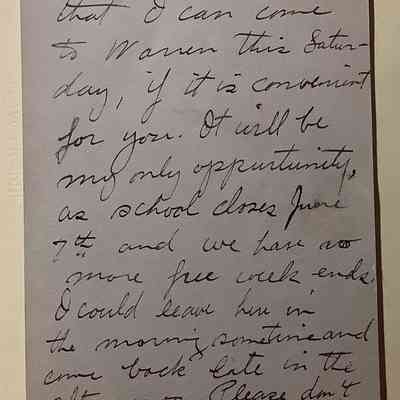 that I can come
to Warren this Satur-
day, if it is convenient
for you. It will be
my only oppurtunity,
as school closes June
7th and we have no
more free week ends.
I could leave here in
the morning sometime and
come back late in the
afternoon. Please don't